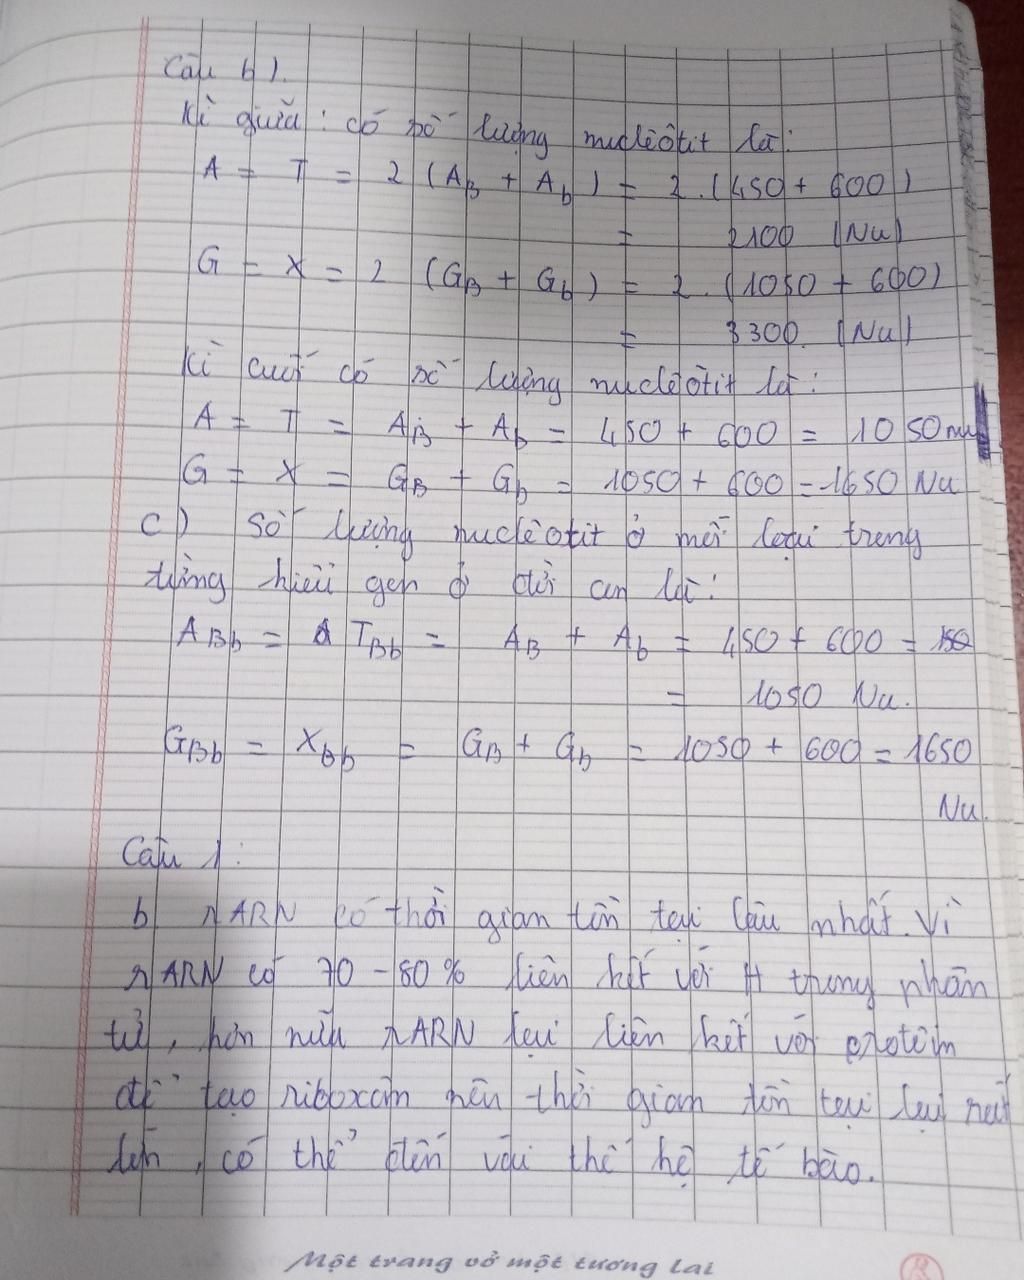 Câu b).
Kì giữa: có số lượng nuclêôtit là:
A = T = 2 (AB + Ab) = 2.(450 + 600)
= 2100 (Nu)
G = X = 2 (GB + Gb) = 2.(1050 + 600)
= 3300. (Nu)
Kì cuối có số lượng nuclêôtit là:
A = T = AB + Ab = 450 + 600 = 1050 nu
G = X = GB + Gb = 1050 + 600 = 1650 Nu
c) Số lượng nuclêotit ở mỗi loại trong
từng kiểu gen ở đời con là:
ABb = TBb = AB + Ab = 450 + 600 =
= 1050 Nu.
GBb = XBb = GB + Gb = 1050 + 600 = 1650
Nu.
Câu 1:
b rARN có thời gian tồn tại lâu nhất. Vì
rARN có 70 - 80% liên kết với H trong phân
tử, hơn nữa rARN lại liên kết với protêin
để tạo ribôxôm nên thời gian tồn tại lại rất
lớn, có thể đến vài thế hệ tế bào.
Một trang vở một tương lai